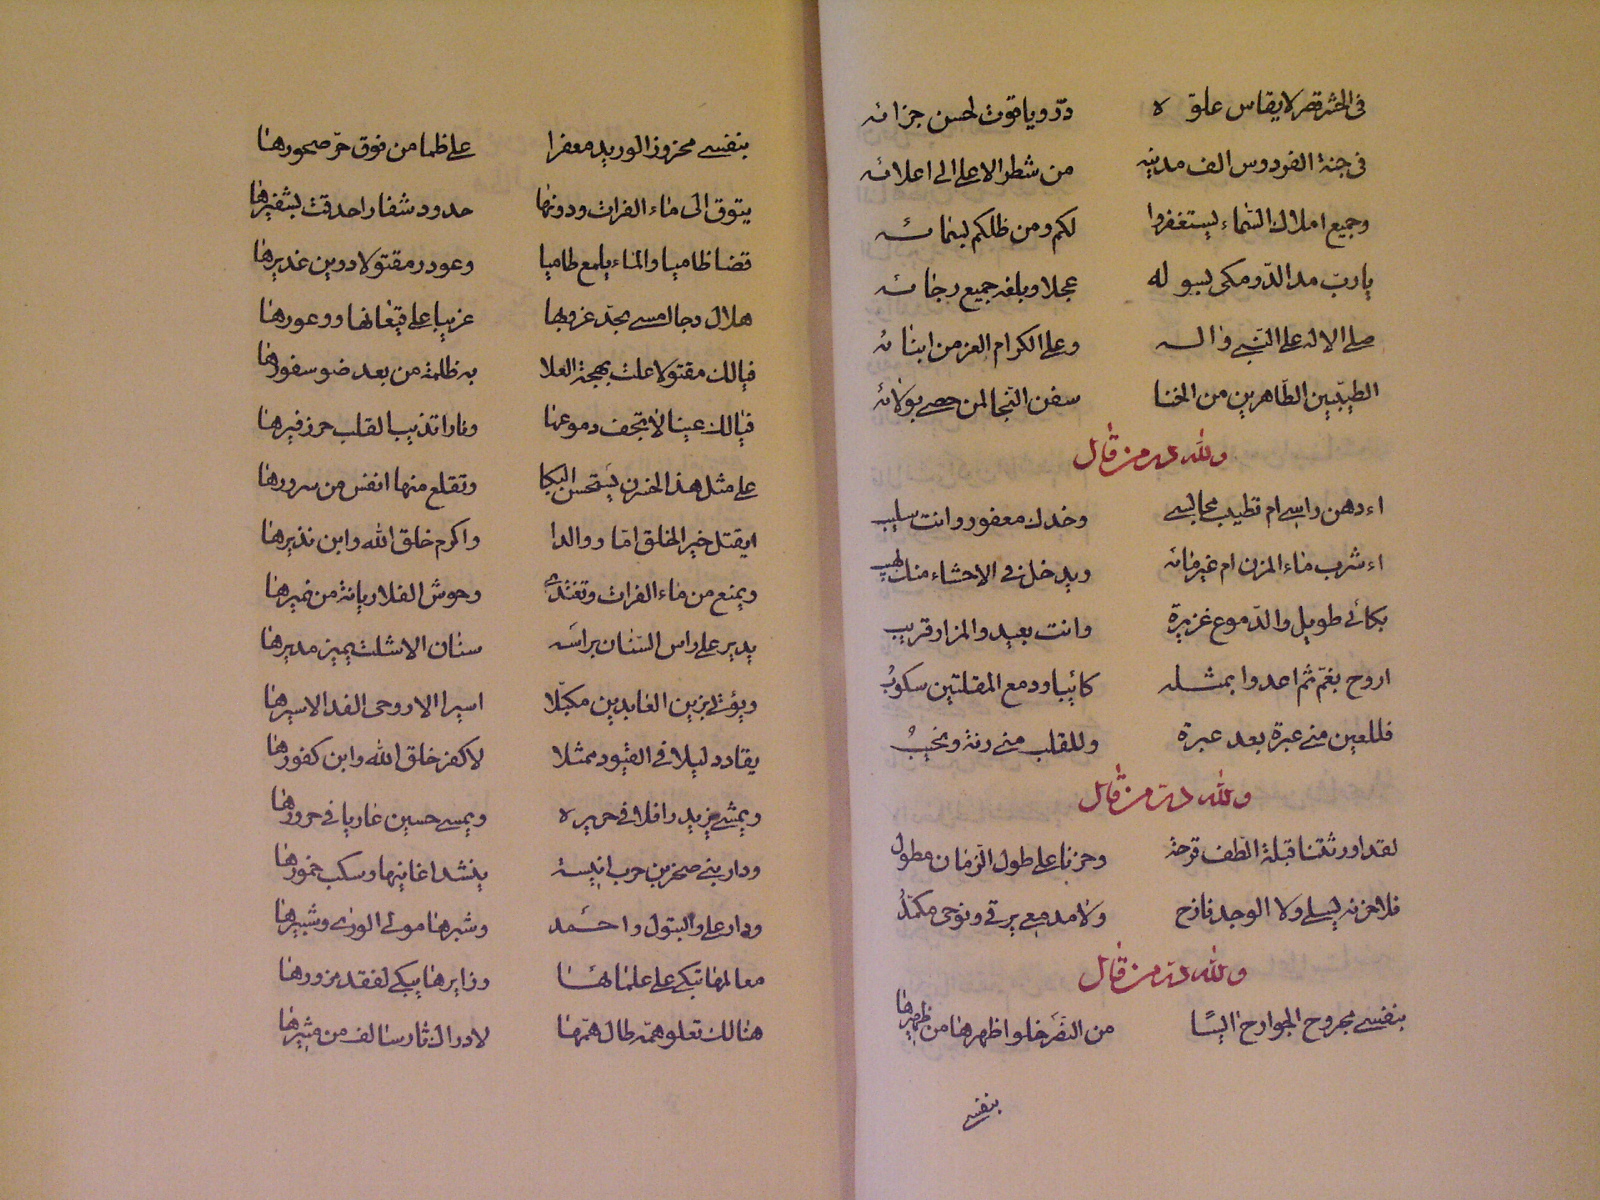 في الحشر قصر لا يقاس علوّه درّ وياقوت لحسن جزائه
في جنة الفردوس الف مدينه من شطر الاعلا الى اعلائه
وجميع املاك السماء ليستغفروا لكم ومن ظلكم لبنائه
يا رب مد الدرمكي بسوله عجلا وبلغه جميع رجائه
صلى الاله على النبي واله وعلى الكرام الغر من ابنائه
الطيبين الطاهرين من الخنا سفن النجا لمن حصى بولائه
ولله در من قال
اءدهن راسي ام تطيب مجالسي وخدك معفور وانت سليب
اءشرب ماء المزن ام غير مائه ويدخل في الاحشاء منك لهيب
بكائي طويل والدموع غزيرة وانت بعيد والمزار قريب
اروح بغم ثم اغدوا بمثله كائيبا ودمع المقلتين سكوب
فللعين مني عبرة بعد عبرة وللقلب مني رنة ونحيب
ولله در من قال
لقد اورثتنا قتلة الطف قرحة وحزنا على طول الزمان مطول
فلا حزنه يسلى ولا الوجد نازح ولا مدمعي يرقى ونوحي مكمد
ولله در من قال
بنفسي مجروح الجوارح ايسا من النصر خلوا ظهرها من ظهيرها
بنفسي
بنفسي محزوز الوريد معفرا على ظما من فوق حرّ صخورها
يتوق الى ماء الفرات ودونها حدود شفار احدقت بشفيرها
قضا ظاميا والماء يلمع طاميا وغودر مقتولا دوين غديرها
هلال دجا امسى بحدّ غروبها غريبا على قيعانها ووعورها
فيالك مقتولا علت بهجة العلا به ظلمة من بعد ضو سفورها
فيالك عينا لا تجف دموعها ونارا تذيب القلب حر زفيرها
على مثل هذا الحزن يستحسن البكا وتقلع منها انفس من سرورها
ايقتل خير الخلق اما ووالدا واكرم خلق الله وابن نذيرها
ويمنع من ماء الفرات وتغتدي وحوش الفلا ريانة من نميرها
يدير على راس السنان براسه سنان الا شلت يمين مديرها
ويؤتى بزين العابدين مكبّلا اسيرا الا روحي الفدا لاسيرها
يقاد ذليلا في القيود ممثلا لاكفر خلق الله وابن كفورها
ويمشي يزيد رافلا في حريره ويمسي حسين عاريا في حرورها
ودار بني صخر بن حرب انيسة ينشد اغانيها وسكب خمورها
ودار علي والبتول واحمد وشبرها مولى الورى وشبيرها
معالمها تبكي على علمائها وزايرها يبكي لفقد مزورها
هنالك تعلو همّه طال همّها لادراك ثار سالف من مثيرها